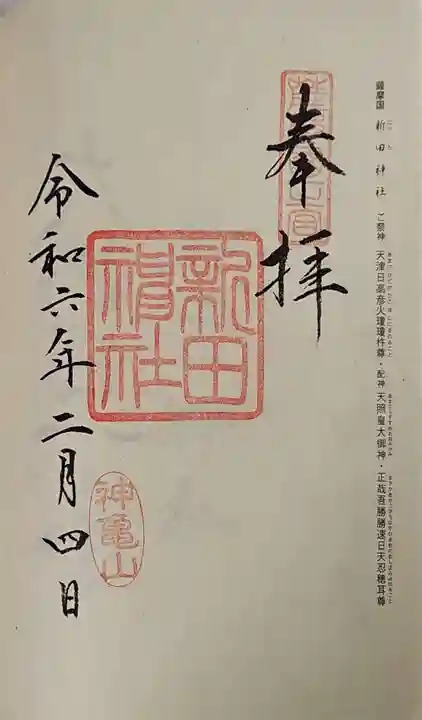 薩摩国 新田神社 ご祭神 天津日高彦火瓊瓊杵尊・配神 天照皇大御神・正哉吾勝勝速日天忍穂耳尊
奉拝
新田
神社
令和六年二月四日
神亀山